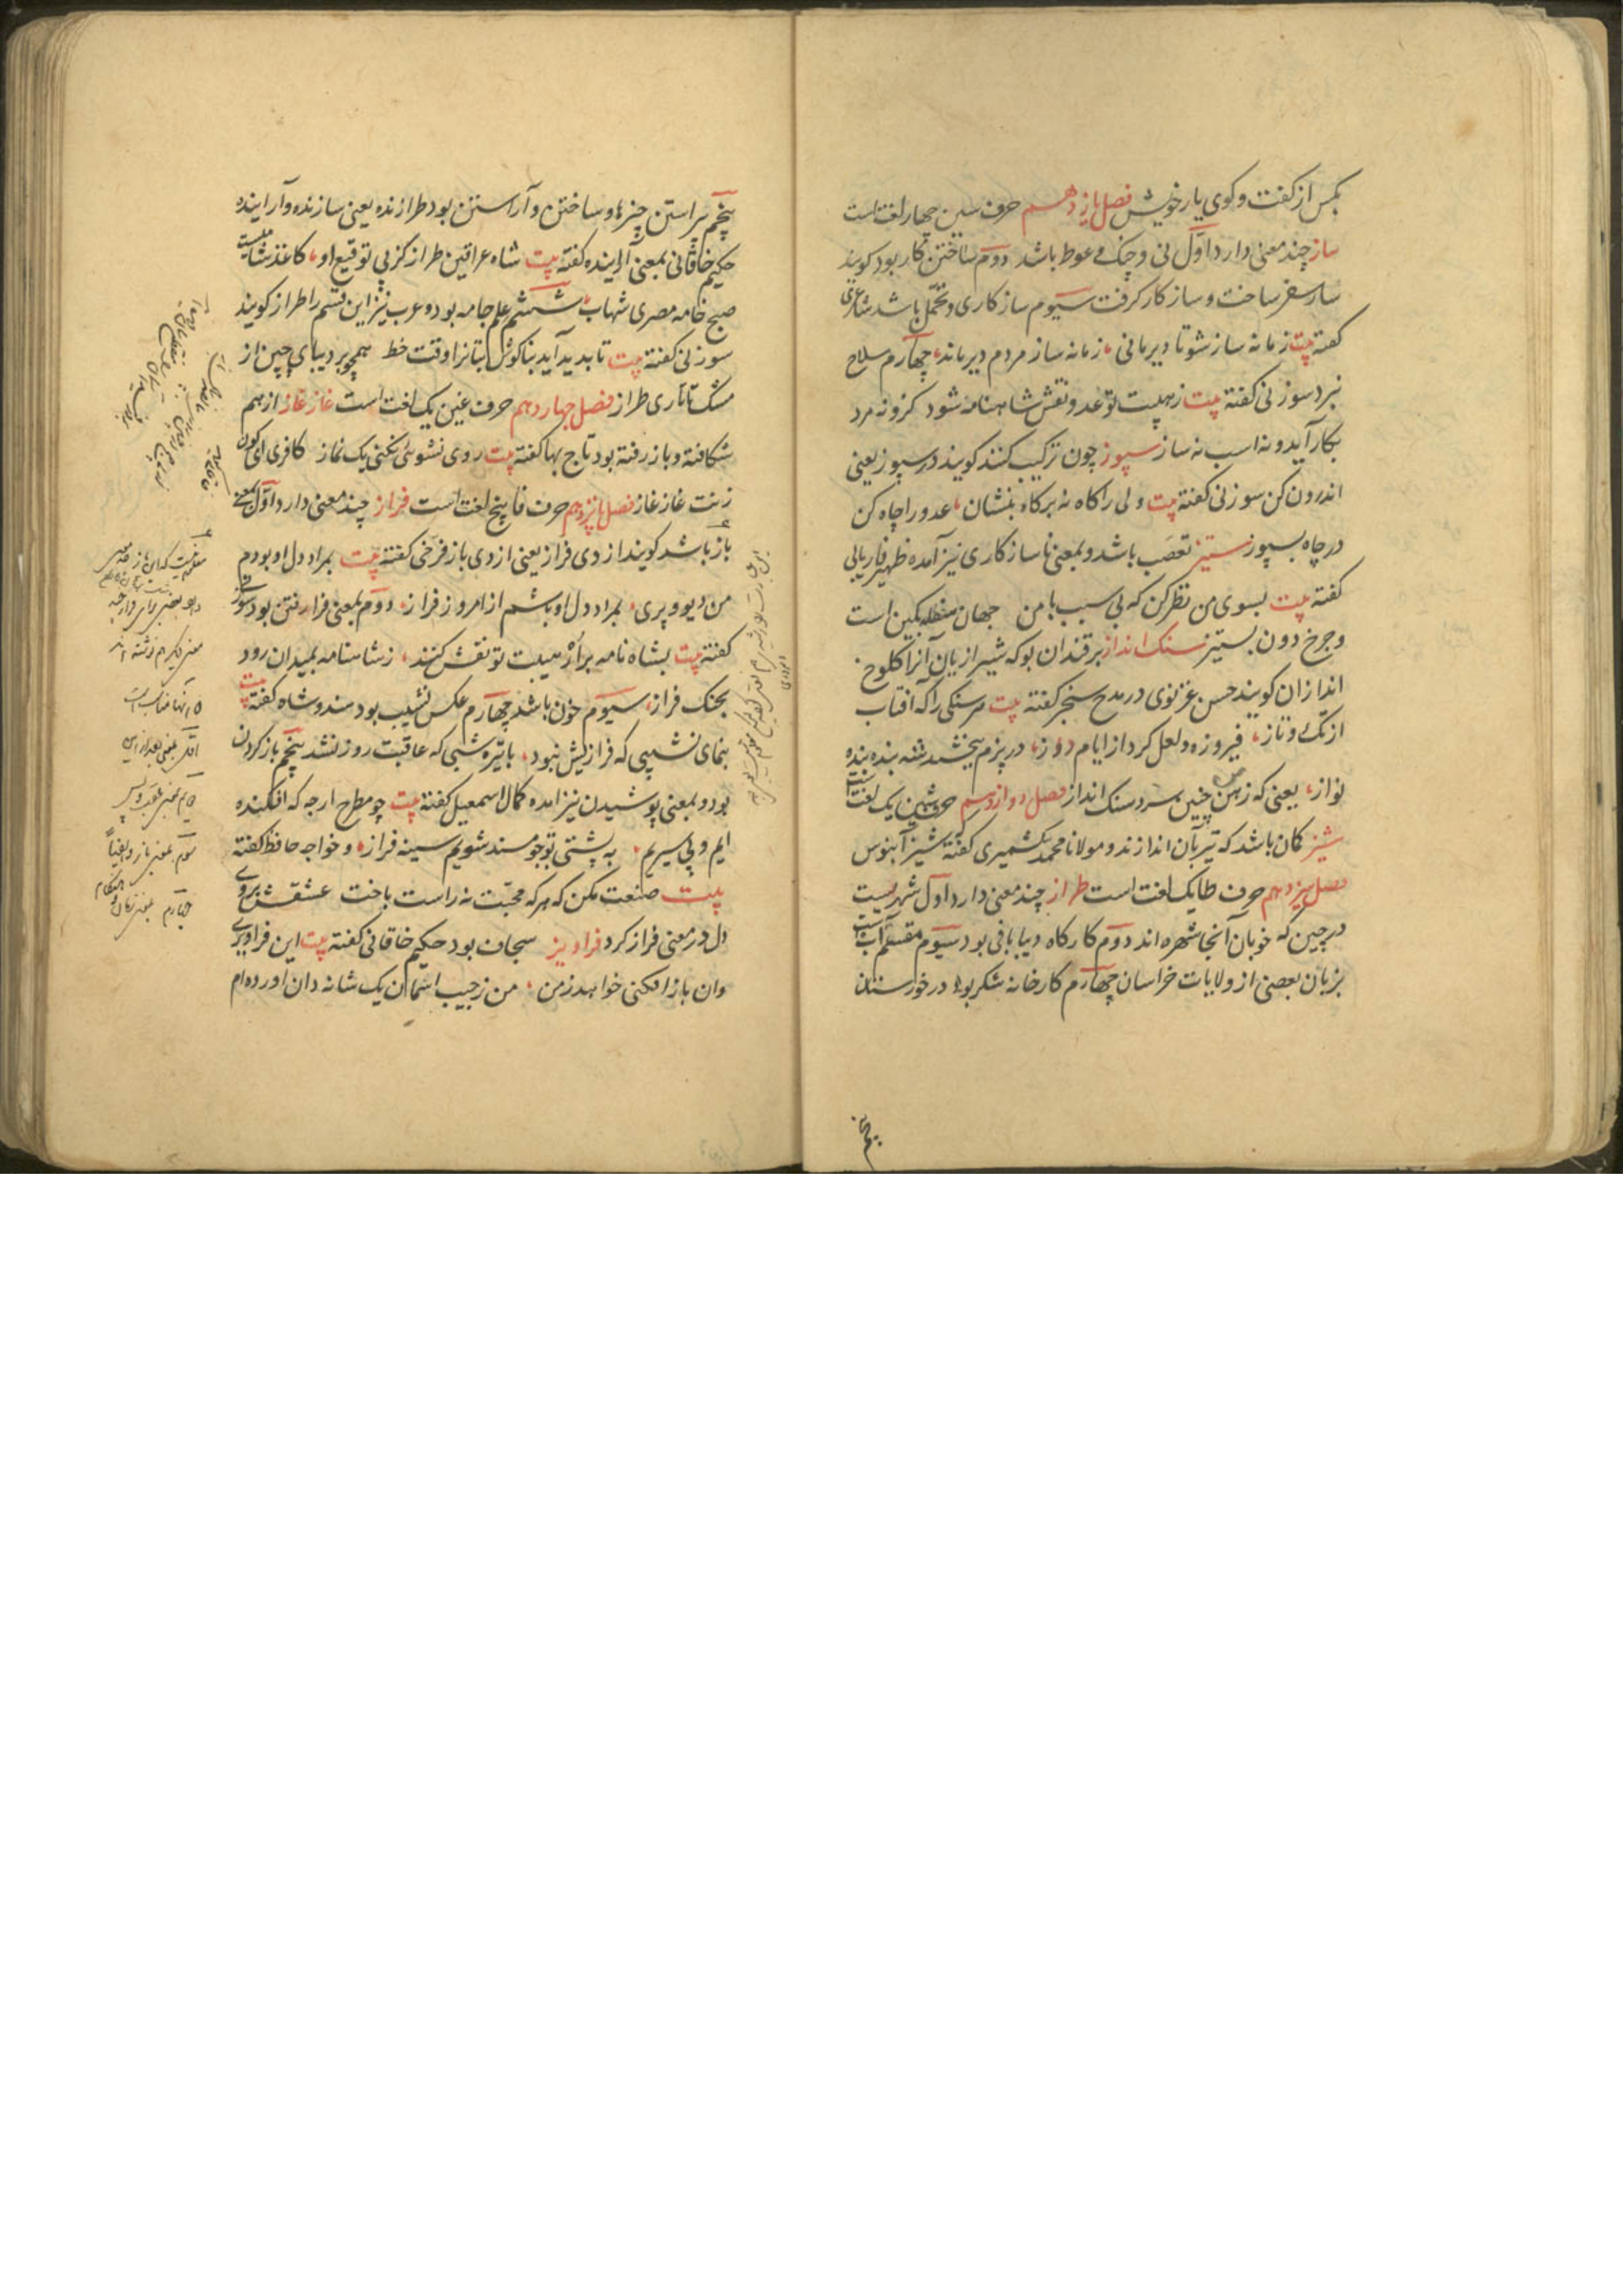 بکس از گفت و کوی یار خویش فصل یازدهم حرف سین چهار لغت است
ساز چند معنی دارد اوّل نی و چنک و عود باشد دوم ساختن کار بود کویند
ساز سفر ساخت و ساز کار کرفت سیوم سازکاری و تحمّل باشد شاعری
کفته بیت زمانه ساز شو تا دیر مانی زمانه ساز مردم دیر ماند چهارم سلاح
نبرد سوزنی کفته بیت ز هیبت تو عدو نقش شاهنامه شود کزو نه مرد
بکار آید و نه اسب نه ساز سپوز چون ترکیب کنند کویند در سپوز یعنی
اندرون کن سوزنی کفته بیت ولی را کاه نه بر کاه بنشان عدو را چاه کن
در چاه بسپوز ستیز تعصّب باشد و بمعنی ناسازکاری نیز آمده ظهیر فاریابی
کفته بیت بسوی من نظر کن که بی سبب با من جهان سفله بکین است
و چرخ دون بستیز سنک انداز برقندان بو که شیرازیان آنرا کلوخ
اندازان کویند حسن غزنوی در مدح سنجر کفته بیت هر سنکی را که افتاب
از تک و تاز فیروزه و لعل کرد از ایام دراز در بزم ببخشید شه بنده
نواز یعنی که ز من چنین سزد سنک انداز فصل دوازدهم حرف شین یک لغت است
شیز کمان باشد که تیر بآن اندازند و مولانا محمد کشمیری کفته شیز آبنوس
فصل سیزدهم حرف طا یک لغت است طراز چند معنی دارد اوّل شهریست
در چین که خوبان آنجا شهره اند دوم کارکاه دیبا بافی بود سیوم مقسم آب است
بزبان بعضی از ولایات خراسان چهارم کارخانه شکر بود در خوزستان
پنجم
پنجم پیراستن چیزها و ساختن و آراستن بود طرازنده یعنی سازنده و آراینده
حکیم خاقانی بمعنی آراینده کفته بیت شاه عراقین طراز کز پی توقیع او کاغذ شامیست
صبح خامه مصری شهاب ششم علم جامه بود و عرب نیز این قسم را طراز کویند
سوزنی کفته بیت تا بدید آید بناکوش بتانرا وقت خط همچو بر دیبای چین از
مشک تاتاری طراز فصل چهاردهم حرف غین یک لغت است غاز غاز از هم
شکافته و باز رفته بود تاج بها کفته بیت روی نشوئی نکنی یک نماز کافری ای کون
زنت غاز غاز فصل پانزدهم حرف فا پنج لغت است فراز چند معنی دارد اوّل بمعنی
باز باشد کویند از دی فراز یعنی از دی باز فرخی کفته بیت بمراد دل او بودم
من دیو و پری بمراد دل او باشم از امروز فراز دوم بمعنی فرا رفتن بود سوزنی
کفته بیت بشاه نامه بر ار هیبت تو نقش کنند ز شاهنامه بمیدان رود
بجنک فراز سیوم خون باشد چهارم عکس نشیب بود هندوشاه کفته بیت
بنمای نشیبی که فرازیش نبود با تیره شبی که عاقبت روز نشد پنجم باز کردن
بود و بمعنی پوشیدن نیز امده کمال اسمعیل کفته بیت چو مطرح ارچه که افکنده
ایم و پی سپریم به پشتی تو چو مسند شویم سینه فراز و خواجه حافظ کفته
بیت صنعت مکن که هر که محبّت نه راست باخت عشقش بروی
دل در معنی فراز کرد فراویز سجاف بود حکیم خاقانی کفته بیت این فراویزی
وان باز افکنی خواهد ز من من ز جیب اسمان یک شانه دان اورده ام